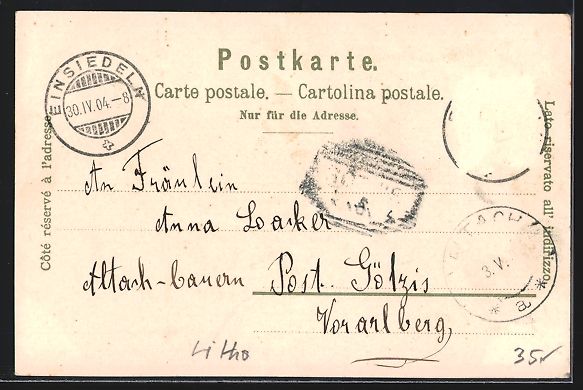 Postkarte.
Carte postale. — Cartolina postale.
Nur für die Adresse.
EINSIEDELN
30.IV.04.–8
Côté réservé à l'adresse.
Lato riservato all' indirizzo
An Fräulein
Anna Loacker
Altach-bauern Post. Götzis
Vorarlberg,
3.V.
a
Litho
35